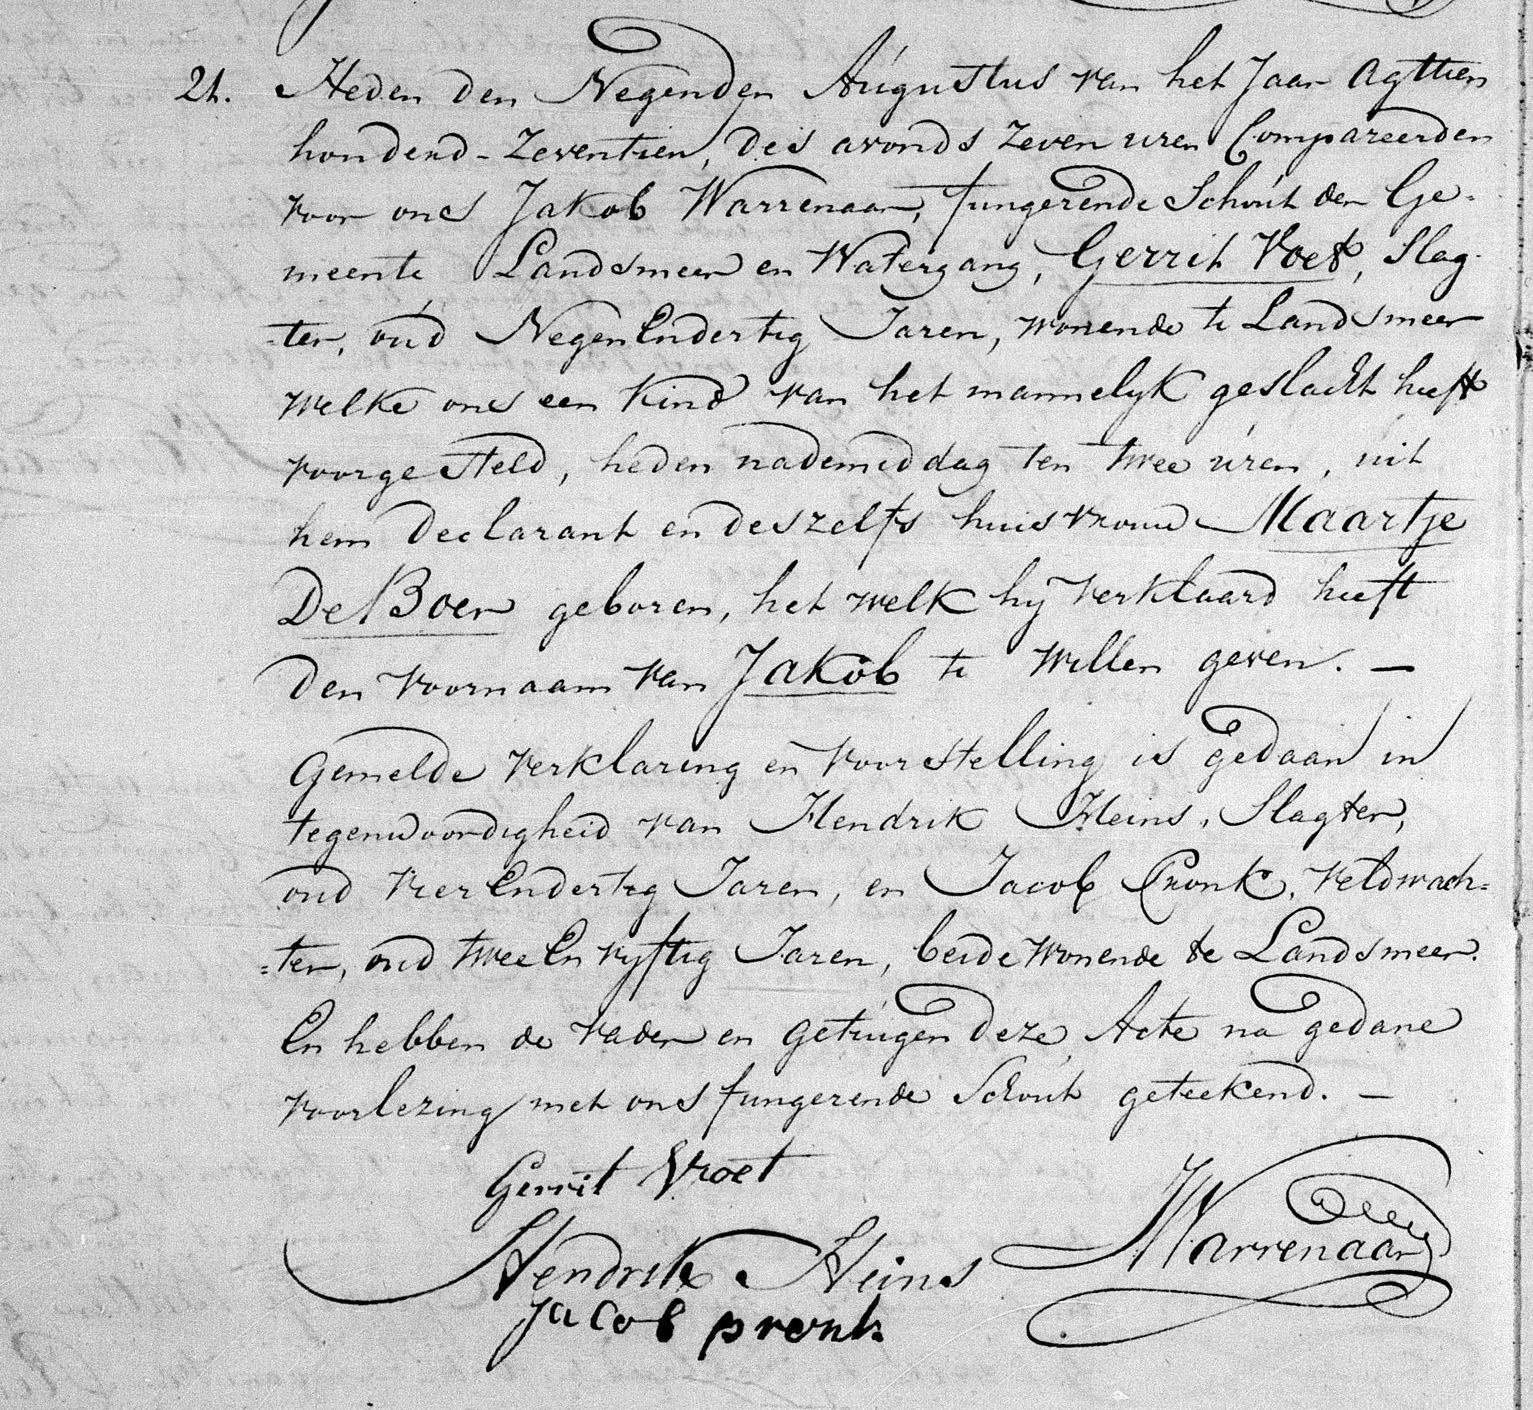 21. Heden den Negenden Augustus van het Jaar Agttien
honderd-Zeventien, des avonds Zeven uren Compareerden
voor ons Jakob Warrenaar, fungerende Schout der Ge-
meente Landsmeer en Watergang, Gerrit Voet, Slag-
-ter, oud NegenEndertig Jaren, wonende te Landsmeer
welke ons een Kind van het mannelyk geslacht heeft
voorgesteld, heden nademiddag ten twee uren, uit
hem Declarant en deszelfs huisvrouw Maartje
De Boer geboren, het welk hij verklaard heeft
den voornaam van Jakob te willen geven. —
Gemelde verklaring en voorstelling is gedaan in
tegenwoordigheid van Hendrik Heins, Slagter,
oud VierEndertig Jaren, en Jacob Pronk, Veldwach=
=ter, oud tweeEnvyftig Jaren, beide wonende te Landsmeer.
En hebben de vader en getuigen deze Acte na gedane
voorlezing met ons fungerende Schout geteekend. —
Gerrit Vroet
JWarrenaar
Hendrik Heins
Jacob pronk